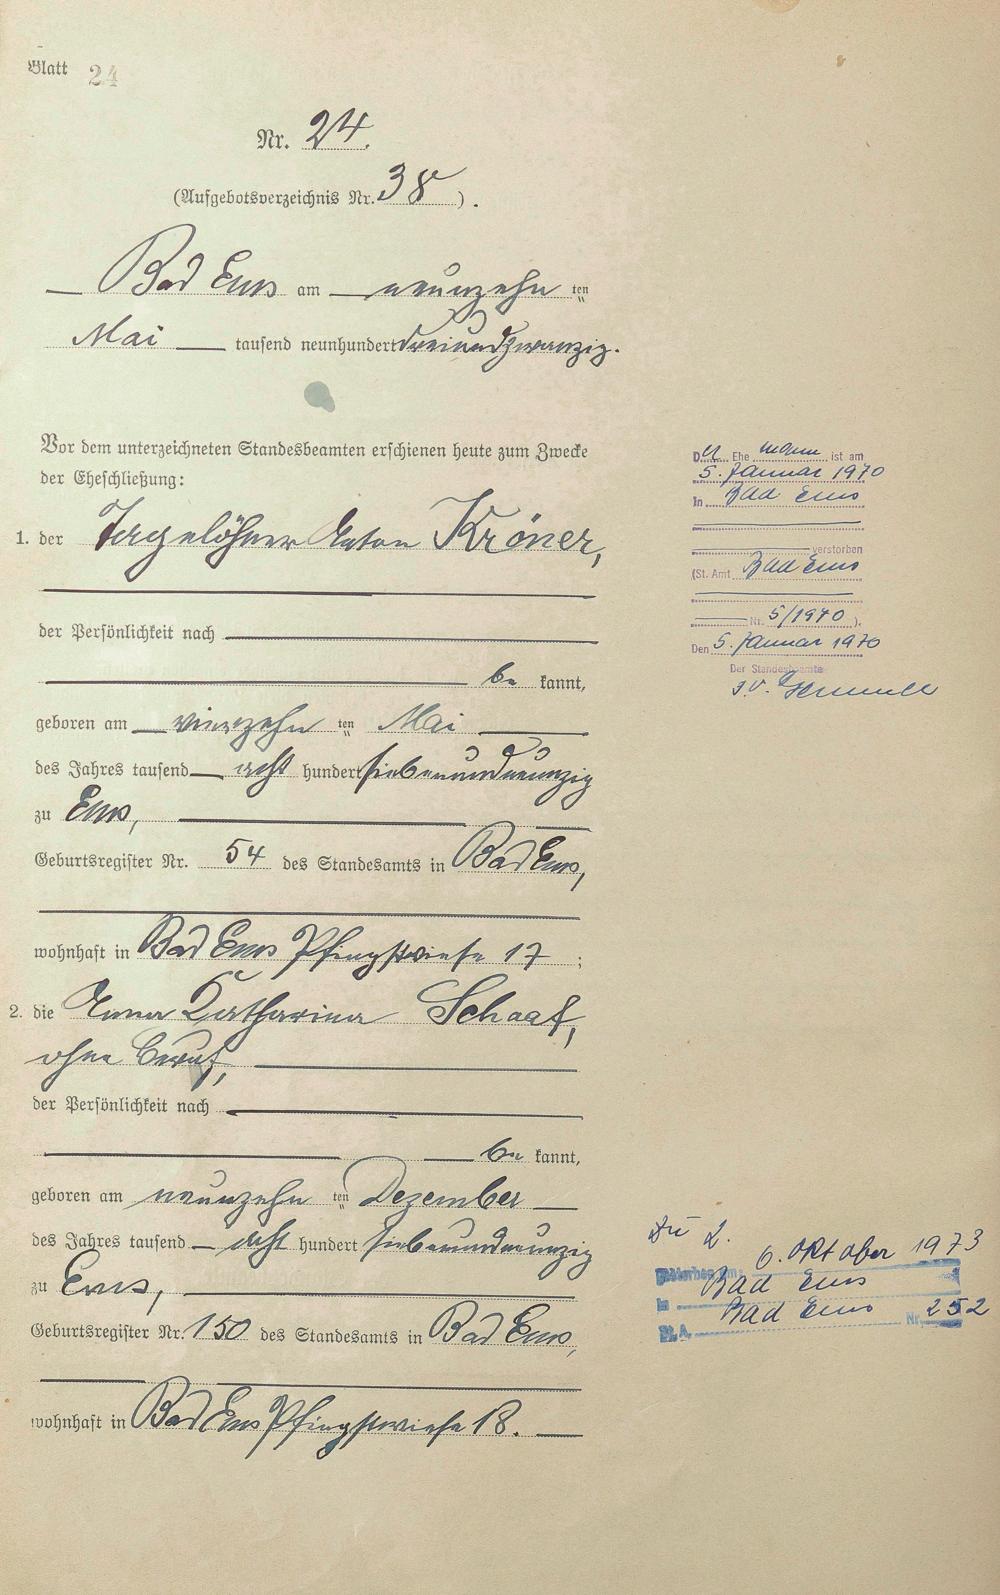 Blatt 24
Nr. 24.
(Aufgebotsverzeichnis Nr. 38).
Bad Ems am neunzehn ten
Mai tausend neunhundert dreiundzwanzig.
Vor dem unterzeichneten Standesbeamten erschienen heute zum Zwecke
der Eheschließung:
1. der Tagelöhner Anton Kröner,
der Persönlichkeit nach
be kannt,
geboren am vierzehn ten Mai
des Jahres tausend acht hundert siebenundneunzig
zu Ems,
Geburtsregister Nr. 54 des Standesamts in Bad Ems,
wohnhaft in Bad Ems Pfingstwiese 17;
2. die Anna Katharina Schaaf,
ohne Beruf,
der Persönlichkeit nach
be kannt,
geboren am neunzehn ten Dezember
des Jahres tausend acht hundert siebenundneunzig
zu Ems,
Geburtsregister Nr. 150 des Standesamts in Bad Ems,
wohnhaft in Bad Ems Pfingstwiese 18.
Der Ehe mann ist am
5. Januar 1970
in Bad Ems
verstorben
(St. Amt Bad Ems
Nr. 5/1970).
Den 5. Januar 1970
Der Standesbeamte
I.V.
Zu 2.
Gestorben am: 6. Oktober 1973
in Bad Ems
St. A. Bad Ems Nr. 252